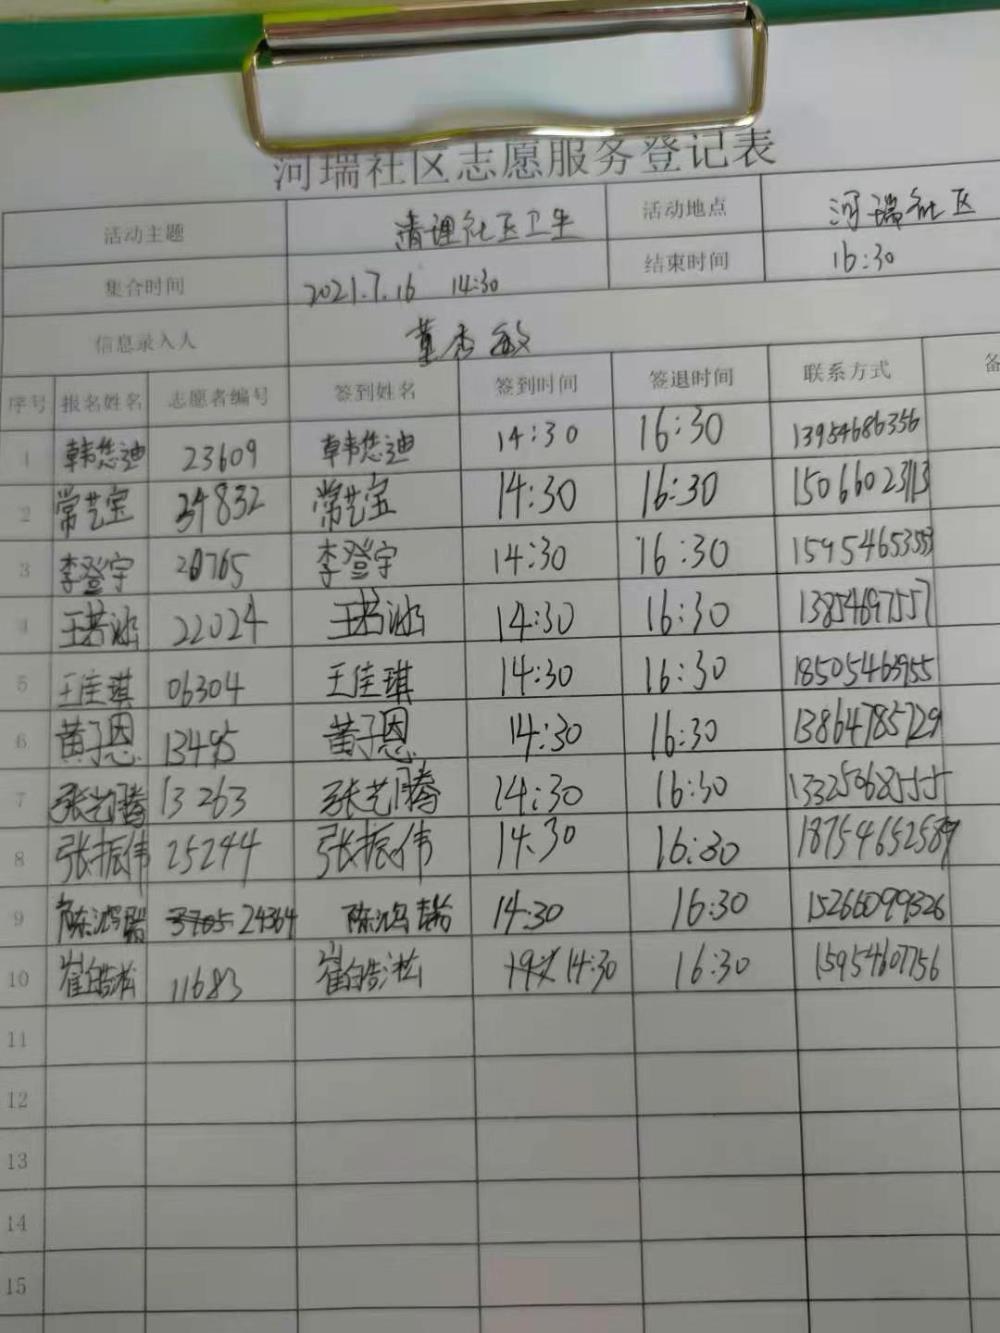 河瑞社区志愿服务登记表
活动主题 清理社区卫生 活动地点 河瑞社区
集合时间 2021.7.16 14:30 结束时间 16:30
信息录入人 董秀敏
序号 报名姓名 志愿者编号 签到姓名 签到时间 签退时间 联系方式 备
1 韩悠迪 23609 韩悠迪 14:30 16:30 13954686356
2 常艺宝 34832 常艺宝 14:30 16:30 15066023113
3 李登宇 20765 李登宇 14:30 16:30 15954653553
4 王若冰 22024 王若冰 14:30 16:30 13854697557
5 王佳琪 06304 王佳琪 14:30 16:30 18505463955
6 黄子恩 13495 黄子恩 14:30 16:30 13864785729
7 张艺腾 13263 张艺腾 14:30 16:30 13325068555
8 张振伟 25244 张振伟 14:30 16:30 18754652589
9 陈鸿瑞 24364 陈鸿瑞 14:30 16:30 15266099326
10 崔皓淞 11683 崔皓淞 14:30 16:30 15954607756
11
12
13
14
15